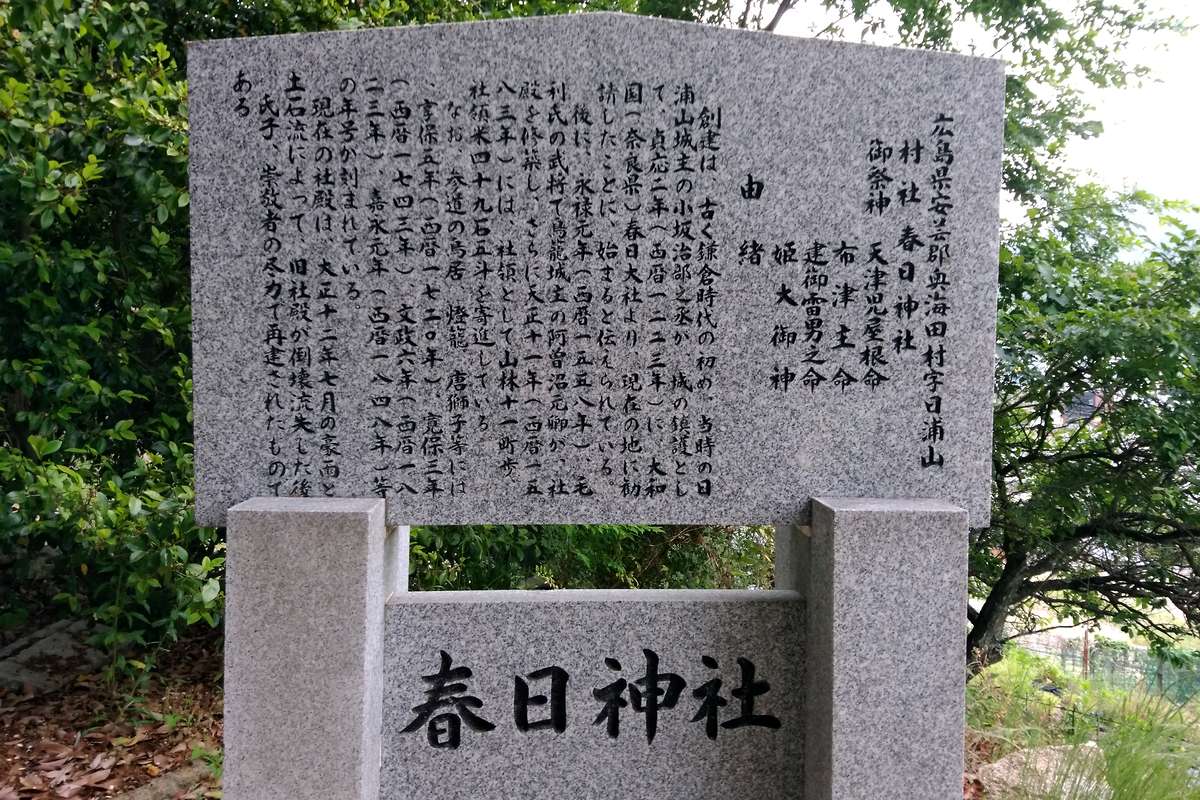 広島県安芸郡奥海田村字日浦山
村社 春日神社
御祭神 天津児屋根命
布津主命
建御雷男之命
姫大御神
由緒
創建は、古く鎌倉時代の初め、当時の日
浦山城主の小坂治部と丞が、城の鎮護とし
て、貞応二年(西暦一二二三年)に、大和
国(奈良県)春日大社より、現在の地に勧
請したことに、始まると伝えられている。
後に、永禄元年(西暦一五五八年)、毛
利氏の武将で鳥籠城主の阿曽沼元郷が、社
殿を修築し、さらに天正十一年(西暦一五
八三年)には、社領として山林十一町歩、
社領米四十九石五斗を寄進している。
なお、参道の鳥居、燈籠、唐獅子等には
、享保五年(西暦一七二〇年)、寛保三年
(西暦一七四三年)、文政六年(西暦一八
二三年)、嘉永元年(西暦一八四八年)等
の年号が刻まれている。
現在の社殿は、大正十二年七月の豪雨と
土石流によって、旧社殿が倒壊流失した後
氏子、崇敬者の尽力で再建されたもので
ある
春日神社